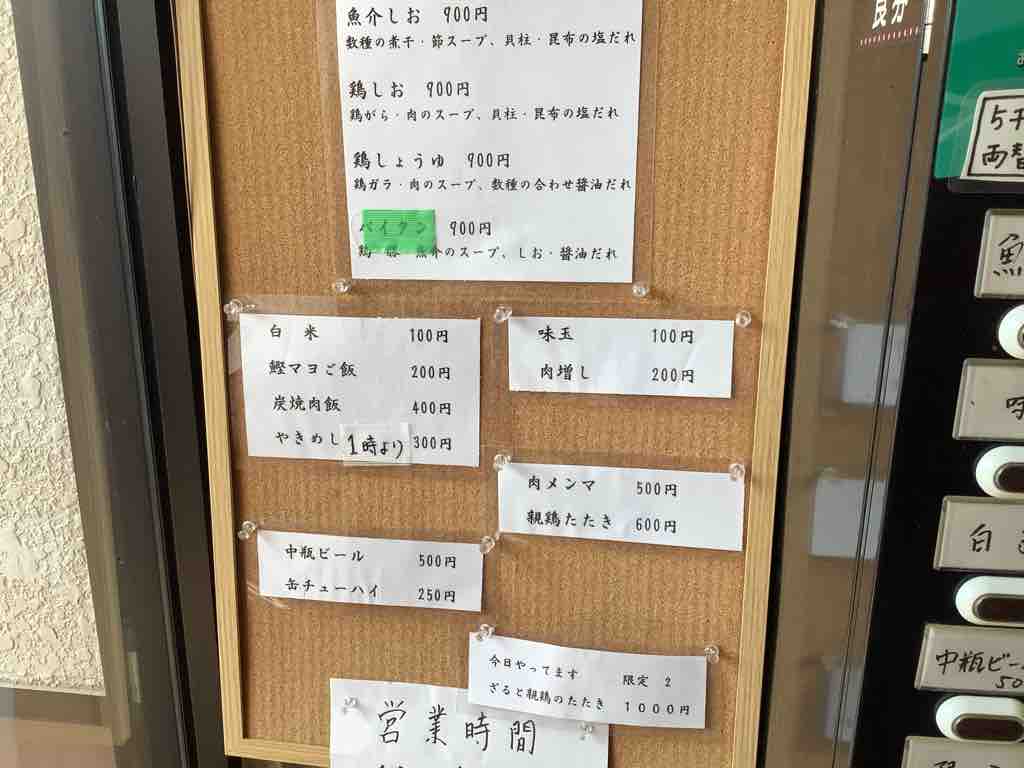 魚介しお 900円
数種の煮干・節スープ、貝柱・昆布の塩だれ
鶏しお 900円
鶏がら・肉のスープ、貝柱・昆布の塩だれ
鶏しょうゆ 900円
鶏ガラ・肉のスープ、数種の合わせ醤油だれ
パイタン 900円
鶏 豚 魚介のスープ、しお・醤油だれ
白米 100円
鰹マヨご飯 200円
炭焼肉飯 400円
やきめし 1時より 300円
味玉 100円
肉増し 200円
肉メンマ 500円
親鶏たたき 600円
中瓶ビール 500円
缶チューハイ 250円
今日やってます 限定 2
ざると親鶏のたたき 1000円
営業時間
良分
5千
両替
魚
味
白
中瓶ビー
50